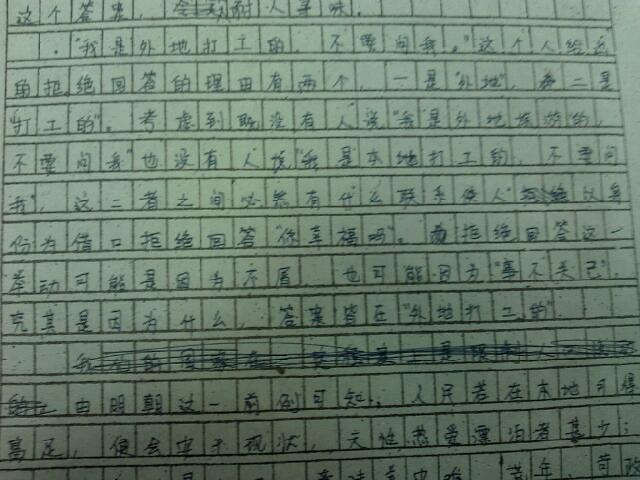 这个答案，令人寻味。
"我是外地打工的，不要问我。"这个人给出
的拒绝回答的理由有两个，一是"外地"，第二是
"打工的"。考虑到既没有人说"我是外地旅游的，
不要问我"也没有人说"我是本地打工的，不要问
我"，这二者之间必然有什么联系使人以身
份为借口拒绝回答"你幸福吗"。而拒绝回答这一
举动可能是因为不屑，也可能因为"事不关己"，
究其是因为什么，答案皆在"外地打工的"
由明朝这一前例可知，人民若在本地可得
富足，便会安于现状，天性热爱漂泊者甚少；